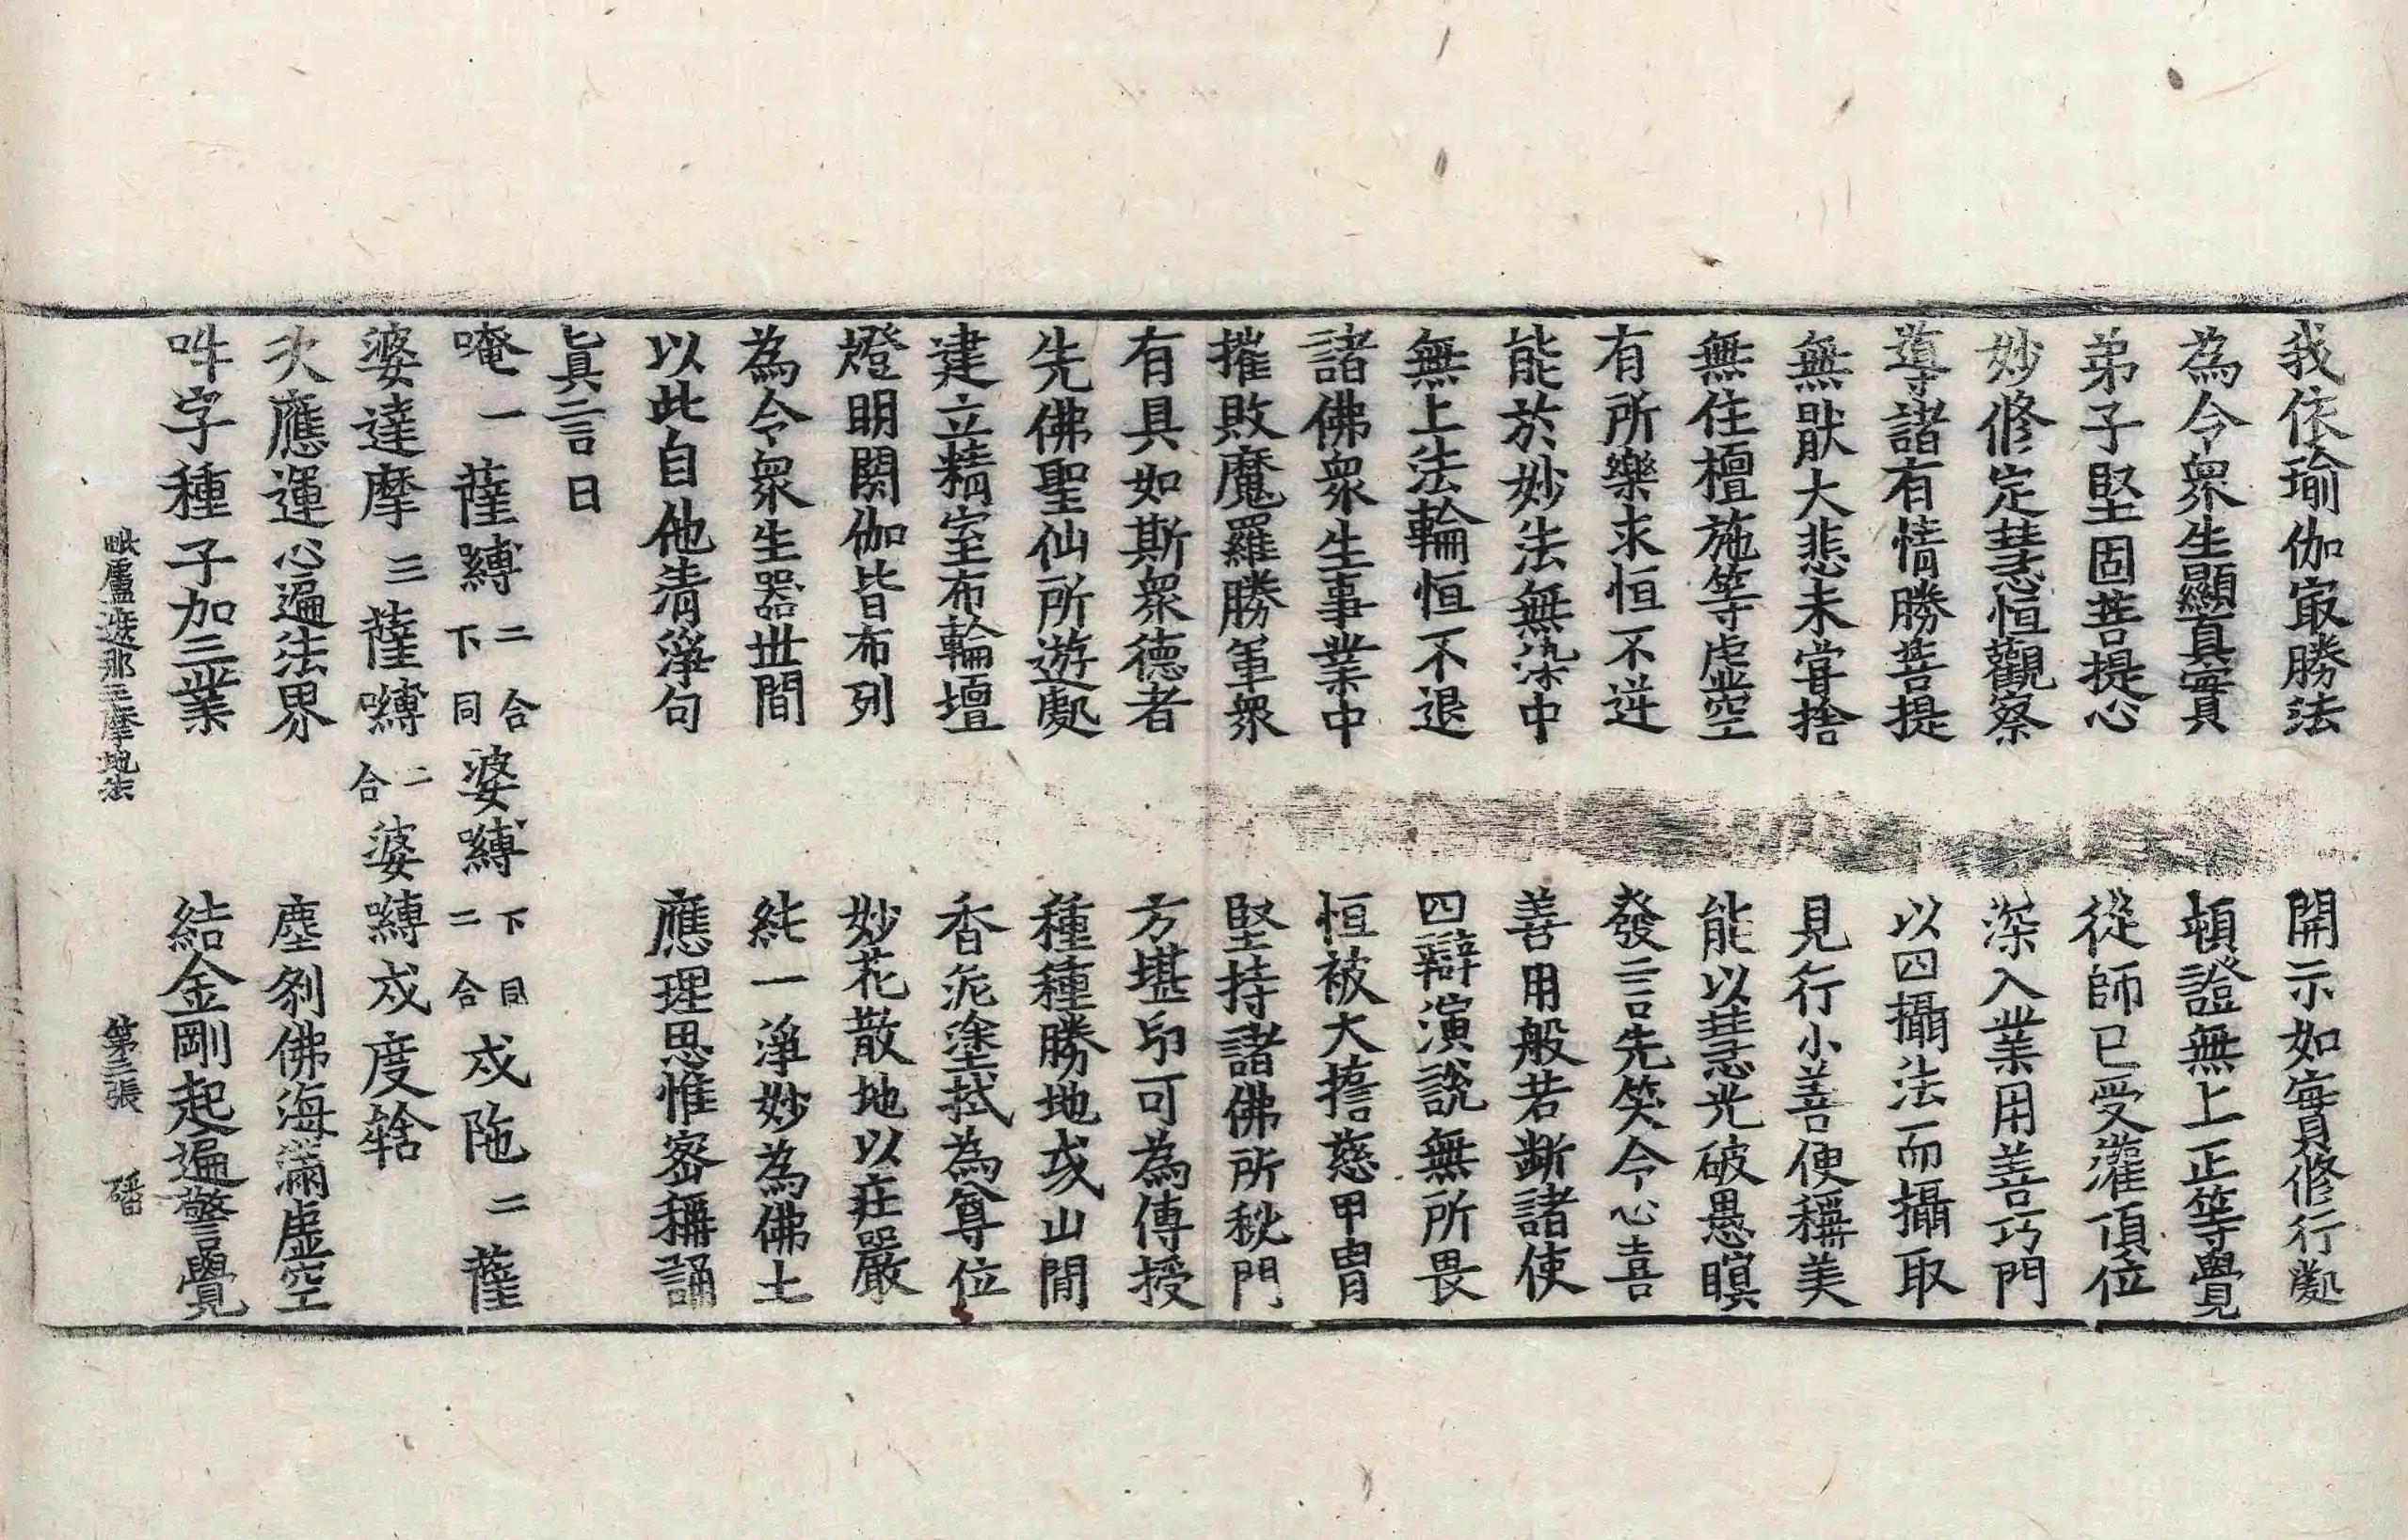 我依瑜伽㝡勝法　開示如實修行處
為令衆生顯真實　頓證無上正等覺
弟子堅固菩提心　從師已受灌頂位
妙修定慧恒觀察　深入業用善巧門
導諸有情勝菩提　以四攝法而攝取
無猒大悲未甞捨　見行小善便稱美
無住檀施等虛空　能以慧光破愚暝
有所樂求恒不逆　發言先笑令心喜
能於妙法無染中　善用般若斷諸使
無上法輪恒不退　四辯演說無所畏
諸佛衆生事業中　恒被大擔慈甲冑
摧敗魔羅勝軍衆　堅持諸佛所秘門
有具如斯衆德者　方堪印可為傳授
先佛聖仙所遊處　種種勝地或山間
建立精室布輪壇　香泥塗拭為尊位
燈明閼伽皆布列　妙花散地以莊嚴
為令衆生器世間　純一淨妙為佛土
以此自他清淨句　應理思惟密稱誦
真言曰
唵一薩嚩二合下同婆嚩下同二合戍陁二薩
婆達摩三薩嚩二合婆嚩戍度䭾
次應運心遍法界　塵剎佛海滿虛空
吽字種子加三業　結金剛起遍警覺
毗盧遮那三摩地法　第三張　磻